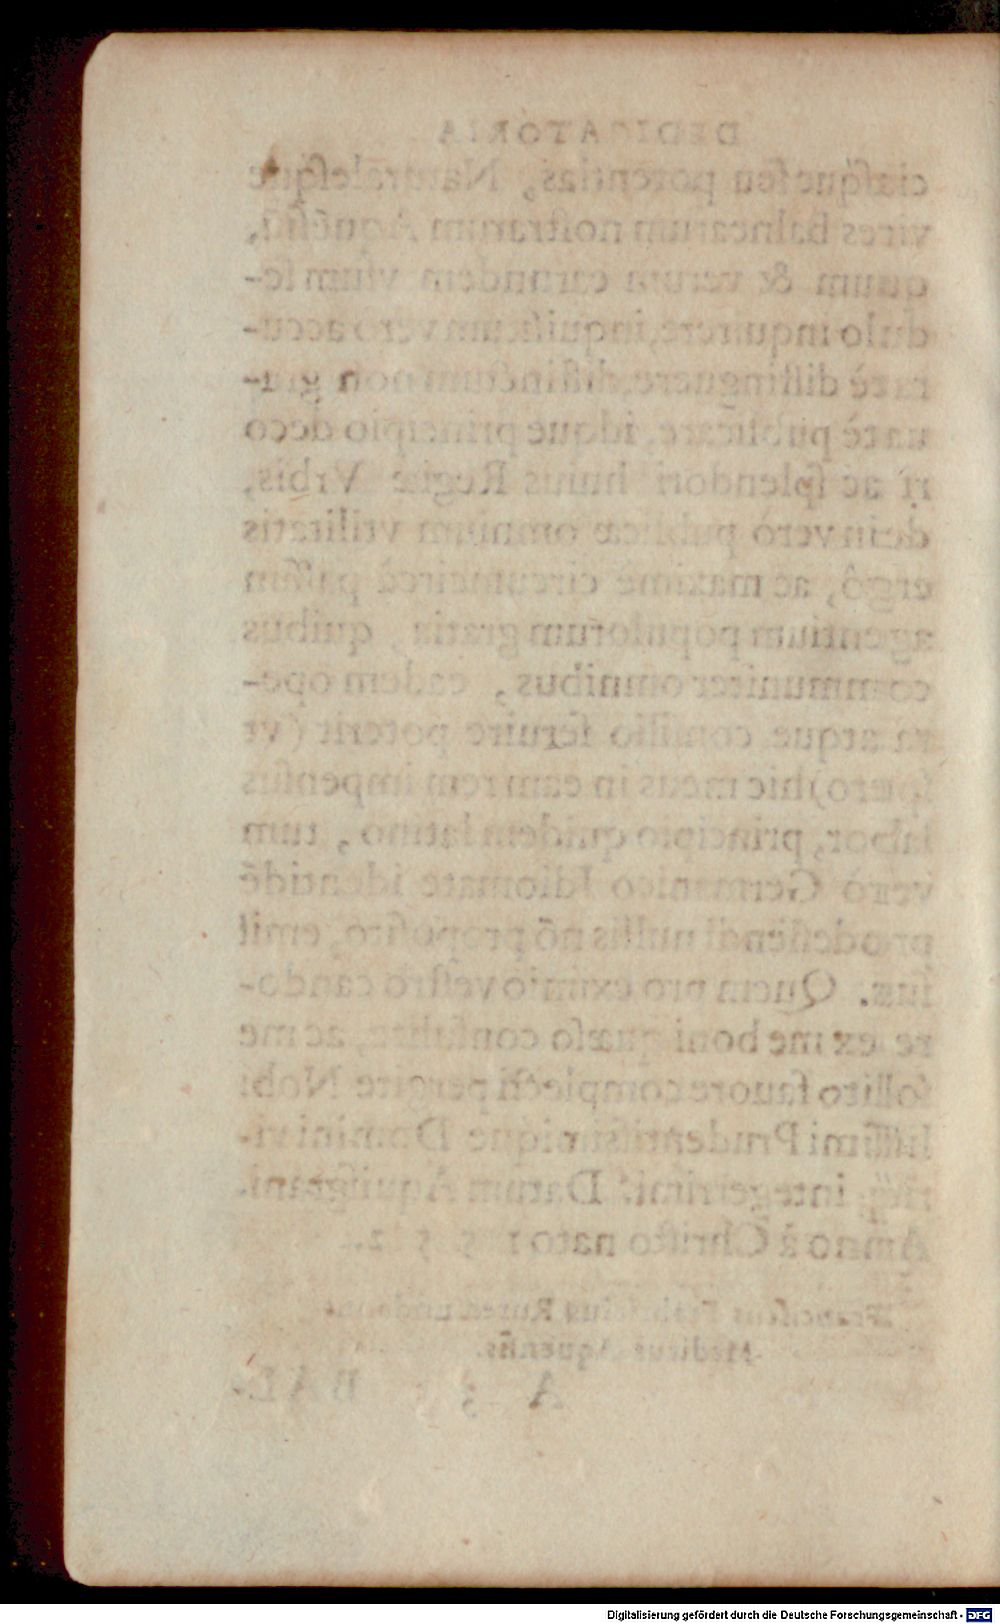 DEDICATORIA
ciasq́ue seu potentias, Naturalesq́ue
vires balnearum nostrarum Aquēsiū,
quum & verum earundem vsum se-
dulo inquirere, inquisitum vero accu-
ratè distinguere, distinctum non gra-
uatè publicare, idque principio deco
ri ac splendori huius Regiæ Vrbis,
dein verò publicæ omnium vtilitatis
ergô, ac maxime circumcircà passim
agentium populorum gratia, quibus
communiter omnibus, eadem ope-
ra atque consilio seruire poterit (vt
spero) hic meus in eam rem impensus
labor, principio quidem latino, tum
verò Germanico Idiomate identidē
prodessendi nullis nō proposito, emis
sus. Quem pro eximio vestro cando-
re ex me boni quæso consulite, ac me
sollito fauore complecti pergite Nobi
lissimi Prudentissimique Domini vi-
riq; integerrimi. Datum Aquisgrani.
Anno à Christo nato 1 5 5 2.
Franciscus Fabricius Ruremundanus
Medicus Aquensis.
A 3 BAL-
Digitalisierung gefördert durch die Deutsche Forschungsgemeinschaft - DFG